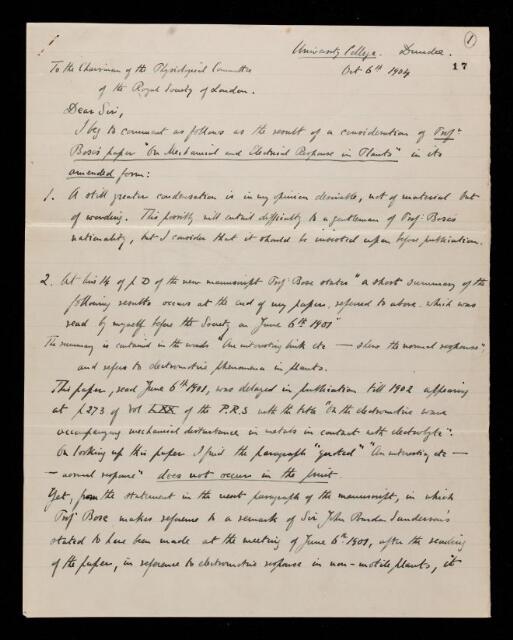 1
University College. Dundee.
17
To the Chairman of the Physiological Committee
Oct 6th 1904
of the Royal Society of London.
Dear Sir,
I beg to comment as follows as the result of a consideration of Prof.
Bose's paper "On Mechanical and Electrical Response in Plants" in its
amended form:
1. A still greater condensation is in my opinion desirable, not of material but
of wording. This possibly will entail difficulty to a gentleman of Prof. Bose's
nationality, but I consider that it should be insisted upon before publication.
2. At line 14 of p D of the new manuscript Prof. Bose states "a short summary of the
following results occurs at the end of my paper, referred to above, which was
read by myself before the Society on June 6th 1901"
The summary is contained in the words "An interesting link etc — shew the normal response",
and refers to electromotive phenomena in plants.
This paper, read June 6th 1901, was delayed in publication till 1902 appearing
at p 273 of Vol LXX of the P.R.S with the title "On the electromotive wave
accompanying mechanical disturbance in metals in contact with electrolyte".
On looking up this paper I find the paragraph "quoted" "An interesting etc —
— normal response" does not occur in the print.
Yet, from the statement in the next paragraph of the manuscript, in which
Prof. Bose makes reference to a remark of Sir John Burdon Sanderson's
stated to have been made at the meeting of June 6th 1901, after the reading
of the paper, in reference to electromotive response in non-motile plants, it